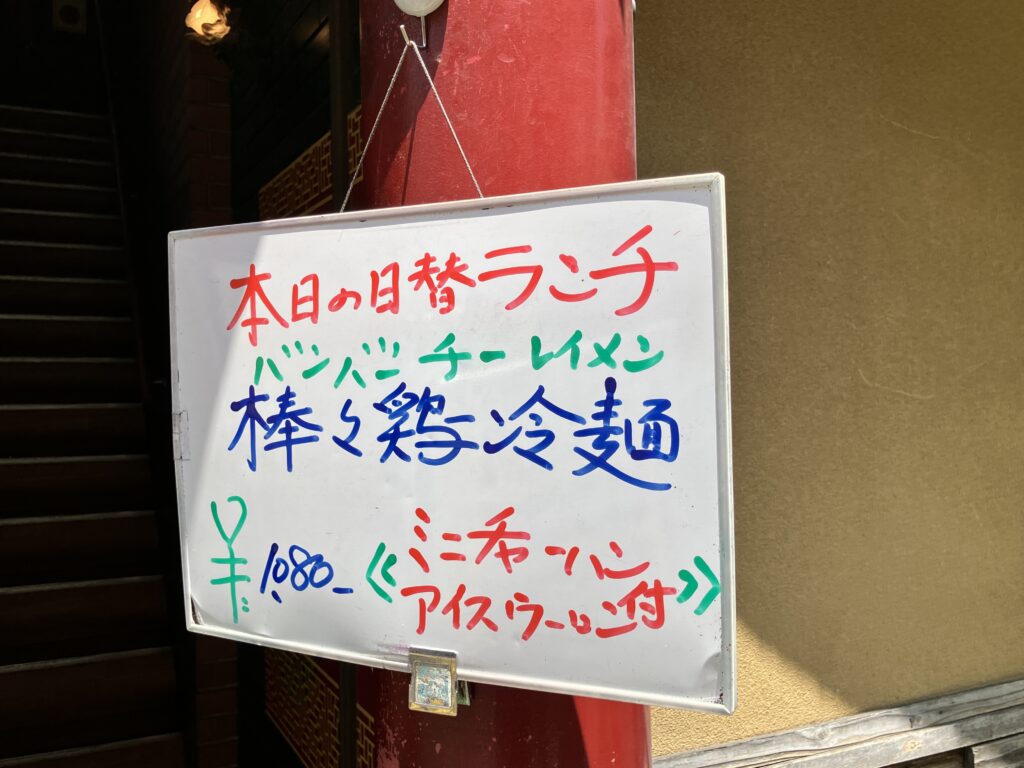 本日の日替ランチ
バンバンチーレイメン
棒々鶏冷麺
¥1,080- 《ミニチャーハン
アイスウーロン付》